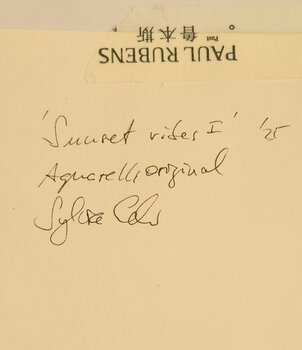 PAUL RUBENS
Paul 鲁本斯
'Sunset vibes I' '25
Aquarelloriginal
Sylvia